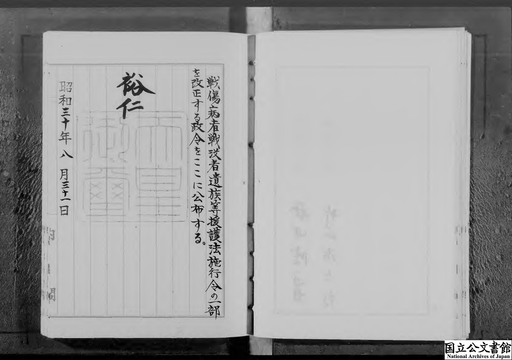 戦傷病者戦没者遺族等援護法施行令の一部
を改正する政令をここに公布する。
裕仁
昭和三十年八月三十一日
国立公文書館
National Archives of Japan